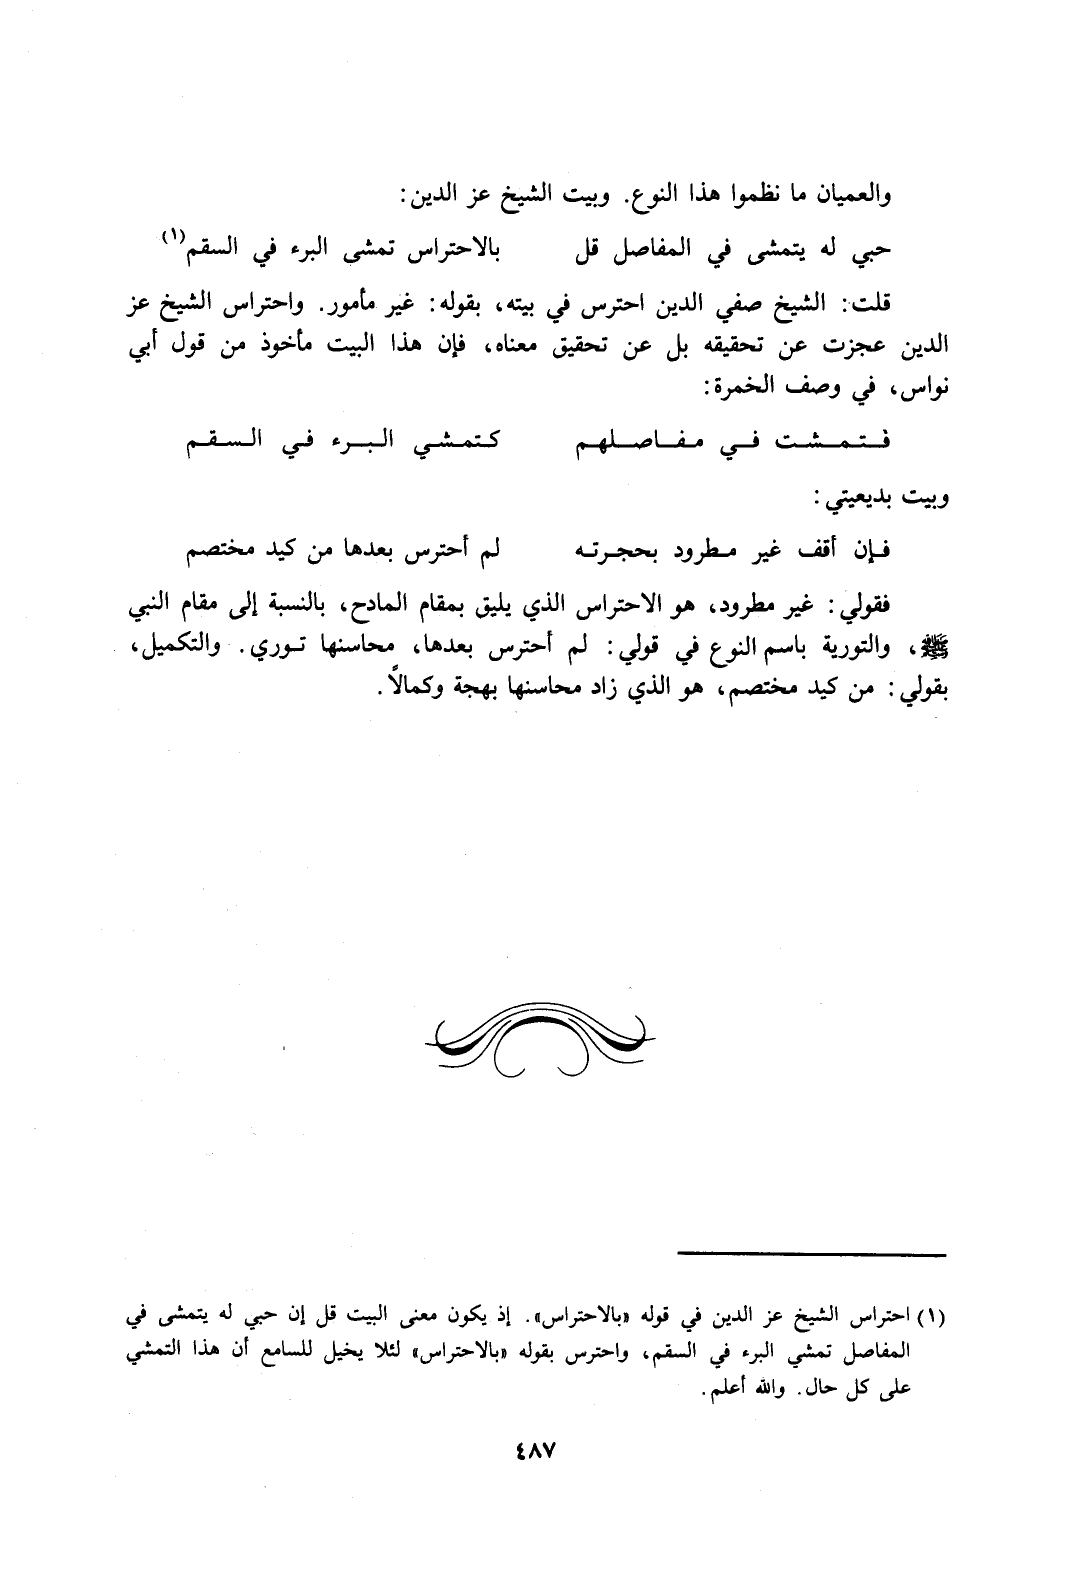 والعميان ما نظموا هذا النوع. وبيت الشيخ عز الدين:
حبي له يتمشى في المفاصل قل بالاحتراس تمشى البرء في السقم(١)
قلت: الشيخ صفي الدين احترس في بيته، بقوله: غير مأمور. واحتراس الشيخ عز
الدين عجزت عن تحقيقه بل عن تحقيق معناه، فإن هذا البيت مأخوذ من قول أبي
نواس، في وصف الخمرة:
فـتـمـشـت فـي مـفـاصـلهـم كـتمـشـي الـبـرء فـي الـسـقـم
وبيت بديعيتي:
فـإن أقف غير مـطرود بحجـرتـه لم أحترس بعدها من كيد مختصم
فقولي: غير مطرود، هو الاحتراس الذي يليق بمقام المادح، بالنسبة إلى مقام النبي
ﷺ، والتورية باسم النوع في قولي: لم أحترس بعدها، محاسنها تـوري. والتكميل،
بقولي: من كيد مختصم، هو الذي زاد محاسنها بهجة وكمالاً.
(١) احتراس الشيخ عز الدين في قوله «بالاحتراس». إذ يكون معنى البيت قل إن حبي له يتمشى في
المفاصل تمشي البرء في السقم، واحترس بقوله «بالاحتراس» لئلا يخيل للسامع أن هذا التمشي
على كل حال. والله أعلم.
٤٨٧